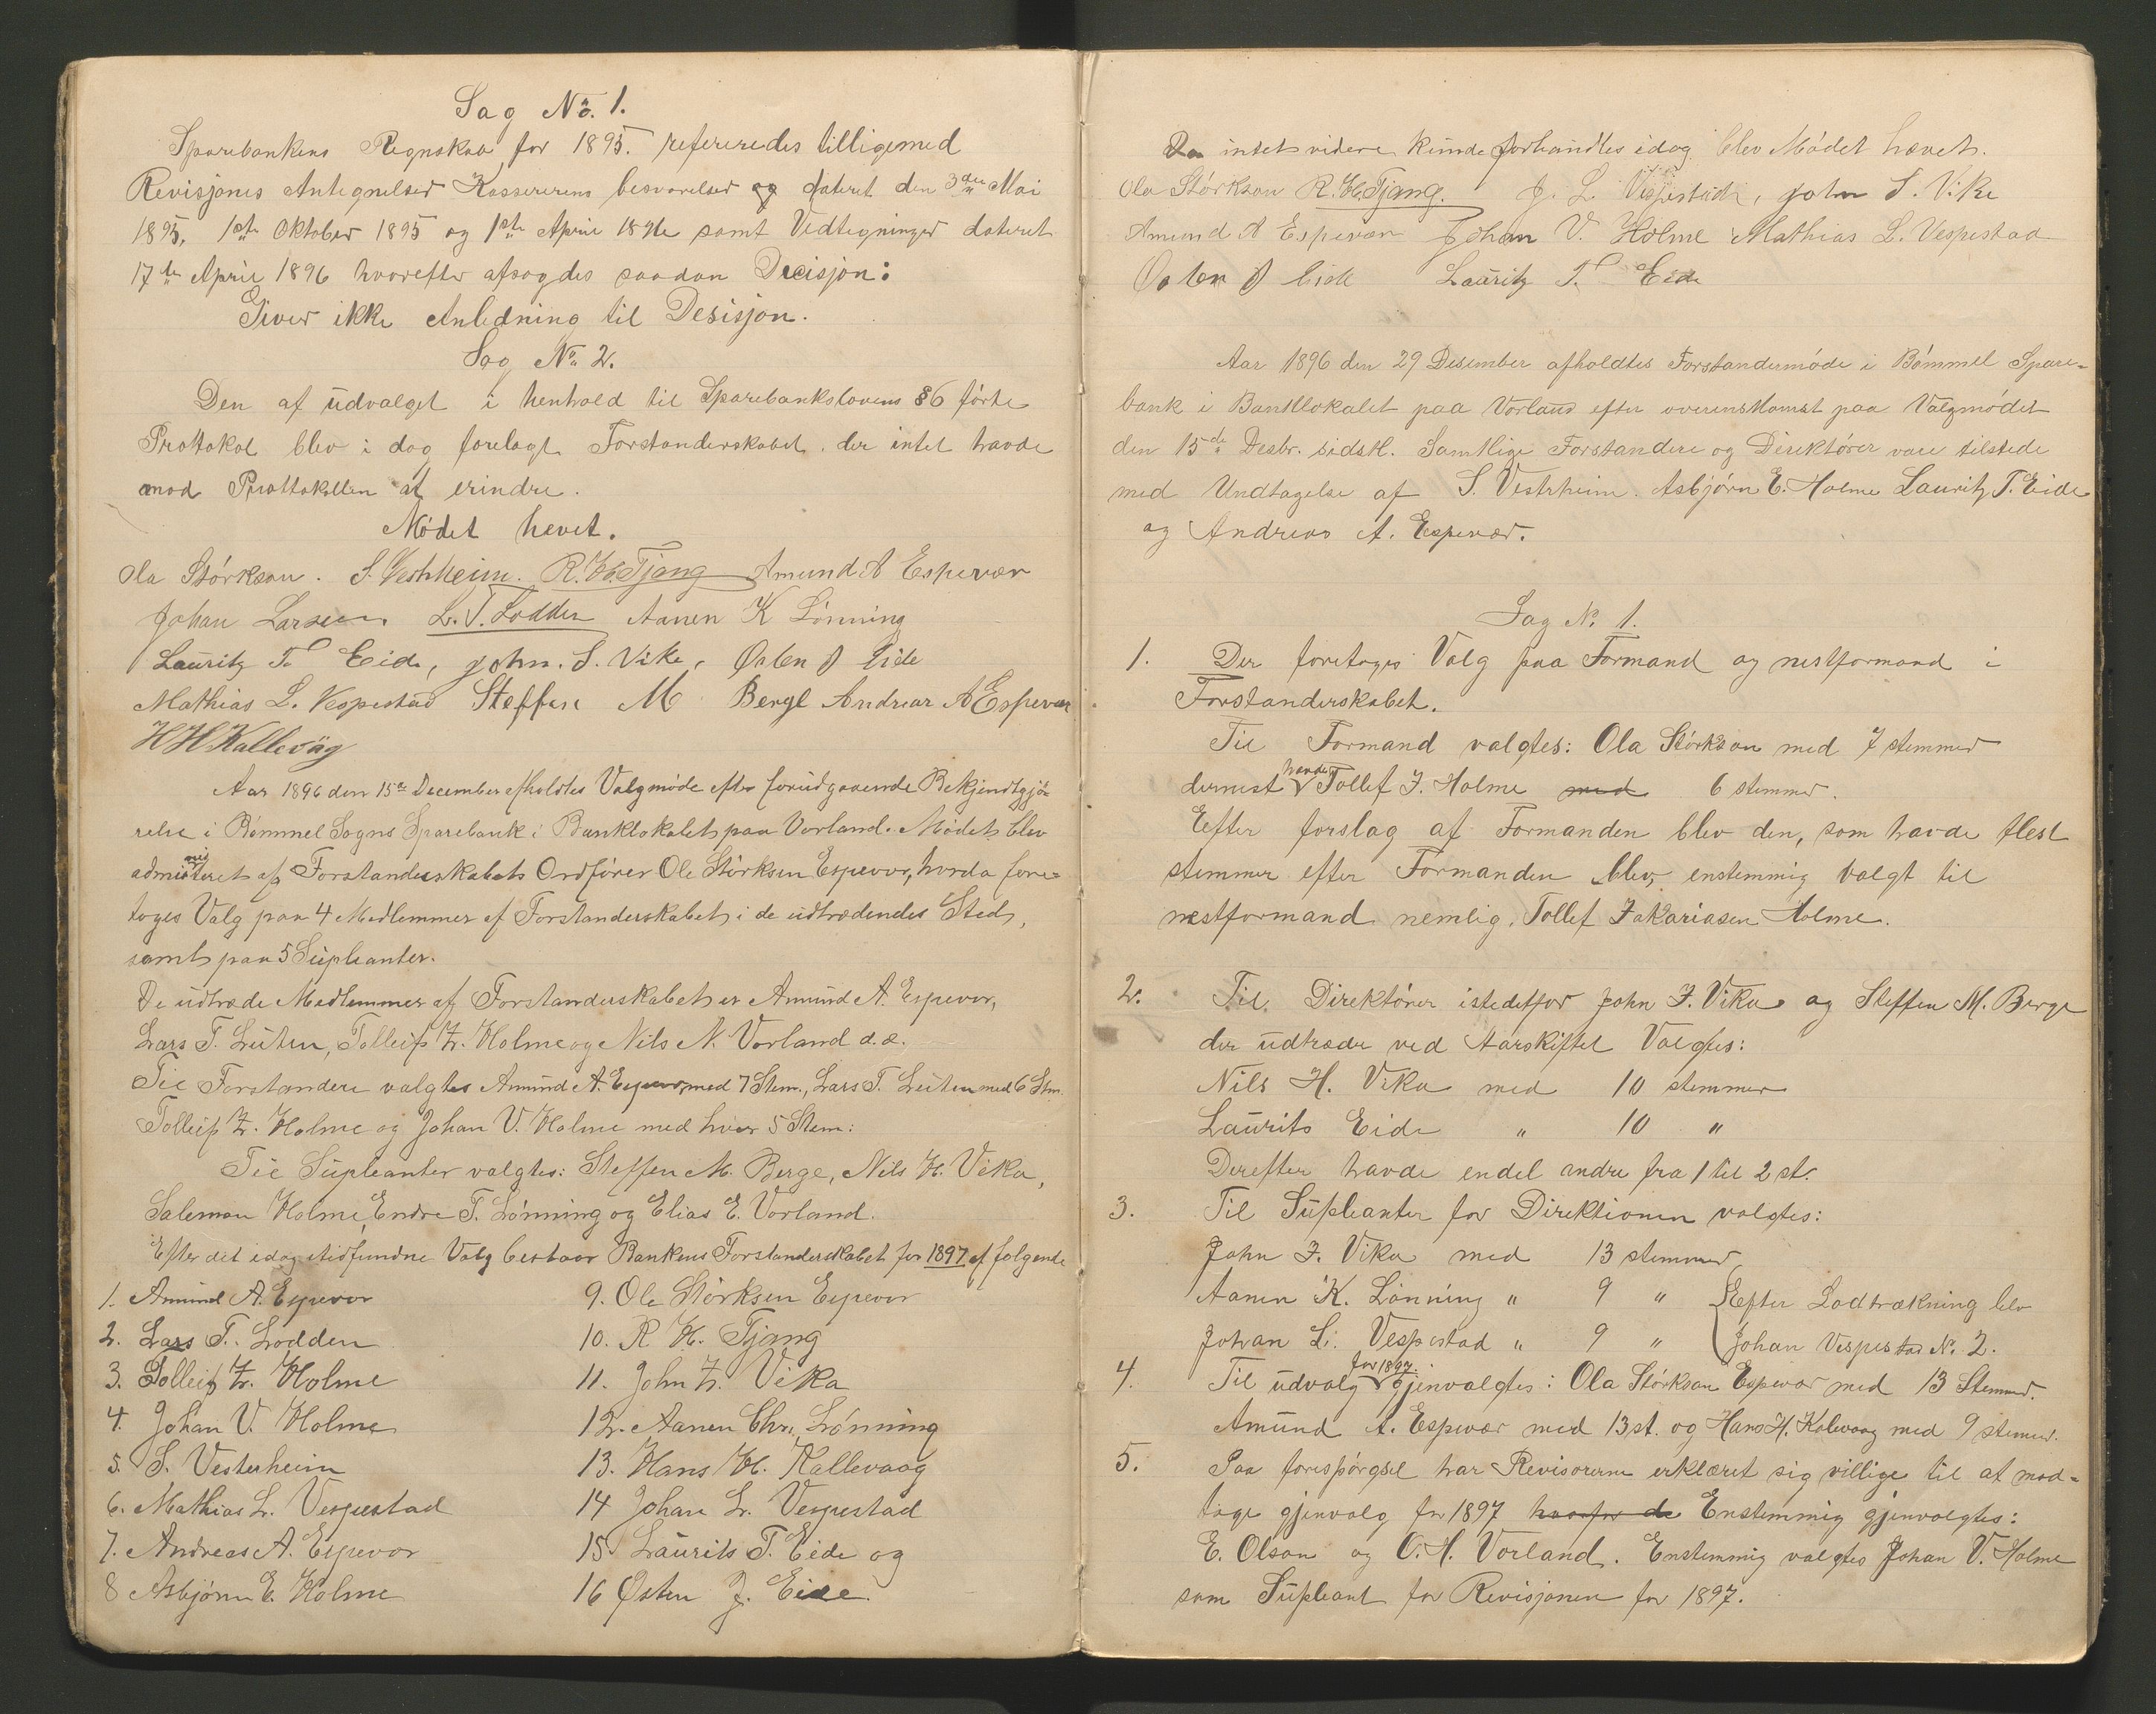 Sag No. 1.
Sparebankens Regnskab for 1895. refereredes tilligemed
Revisjones Antegnelser Kassererens besvarelser og dateret den 3die Mai
1895, 1ste Oktober 1895 og 1ste April 1896 samt Vedtegninger dateret
17de April 1896 hvorefter afsagdes saadan Decisjon:
Giver ikke Anledning til Desisjon.
Sag No. 2.
Den af udvalget i henhold til Sparebankslovens §6 förte
Prottokol blev i dag forelagt Forstanderskabet. der intet havde
mod Prottokollen at erindre.
Mödet hevet.
Ola Störkson. S. Vestrheim. R. H. Tjong Amund A Espevær
Johan Larsen L. T. Lodden Aanen K Lönning
Lauritz T. Eide, John. S. Vike, Østen J Eide
Mathias L. Vespestad Steffen M Berge Andreas A Espevær
H H Kallevåg
Aar 1896 den 15de December afholdtes Valgmöde efter forudgaaende Bekjendtgjö-
relse i Bömmel Sogns Sparebank i Banklokalet paa Vorland. Mödet blev
administeret af Forstanderskabets Ordförer Ole Störksen Espevær, hvorda fore-
toges Valg paa 4 Medlemmer af Forstanderskabet i de udtrædendes Sted,
samt paa 5 Supleanter.
De udtræde Medlemmer af Forstanderskabet er Amund A. Espevær,
Lars T. Luten, Tolleif Z. Holme og Nils N. Vorland d.æ.
Til Forstandere valgtes Amund A. Espevær med 7 Stem., Lars T. Luten med 6 Stm.
Tolleif Z. Holme og Johan V. Holme med hver 5 Stem:
Til Supleanter valgtes: Steffen M. Berge, Nils H. Vika,
Salemon Holme, Endre T. Lönning og Elias E. Vorland.
Efter det idag stedfundne Valg bestaar Bankens Forstanderskabet for 1897 af følgende
1. Amund A. Espevær
2. Lars T. Lodden
3. Tolleif Z. Holme
4. Johan V. Holme
5. S. Vesterheim
6. Mathias L. Vespestad
7. Andreas A. Espevær
8 Asbjörn E. Holme
9. Ole Störksen Espevær
10. R H. Tjong
11. John Z. Vika
12. Aanen Chr. Lönning
13. Hans H. Kallevaag
14 Johan L. Vespestad
15 Laurits T. Eide og
16 Østen J. Eide.
Da intet videre kunde forhandles idag blev Mödet hævet.
Ola Störkson R. H. Tjong. J. L. Vespestad, John S. Vike
Amund A Espevær Johan V. Holme Mathias L. Vespestad
Østen J Eide Lauritz T. Eide
Aar 1896 den 29 Desember afholdtes Forstandermöde i Bömmel Spare-
bank i Banklokalet paa Vorland efter overenskomst paa Valgmödet
den 15de Desbr. sidstl. Samtlige Forstandere og Direktörer vare tilstede
med Undtagelse af S. Vestrheim. Asbjörn E. Holme Lauritz T. Eide
og Andreas A. Espevær.
Sag No. 1.
1. Der foretoges Valg paa Formand og nestformand i
Forstanderskabet.
Til Formand valgtes: Ola Störkson med 7 stemmer
dernest havde Tollef Z. Holme med 6 stemmer.
Efter forslag af Formanden blev den, som havde flest
stemmer efter Formanden blev, enstemmig valgt til
nestformand nemlig. Tollef Zakariasen Holme.
2. Til Direktörer istedetfor John Z. Vika og Steffen M. Berge
der udtræder ved Aarskiftet Valgtes:
Nils H. Vika med 10 stemmer
Laurits Eide " 10 "
Derefter havde endel andre fra 1 til 2 st.
3. Til Supleanter for Direktionen valgtes:
John Z. Vika med 13 stemmer
Aanen K. Lönning " 9 " Efter Lodtrækning blev
Johan L. Vespestad " 9 " Johan Vespestad No. 2.
4. Til udvalg for 1897. gjenvalgtes: Ola Störkson Espevær med 13 Stemmer.
Amund A. Espevær med 13 st. og Hans H. Kalevaag med 9 stemer.
5. Paa forespörgsel har Revisorerne erklæret sig villige til at mod-
tage gjenvalg for 1897 hvorfor de Enstemmig gjenvalgtes:
E. Olson og O. H. Vorland. Enstemmig valgtes Johan V. Holme
som Supleant for Revisjonen for 1897.